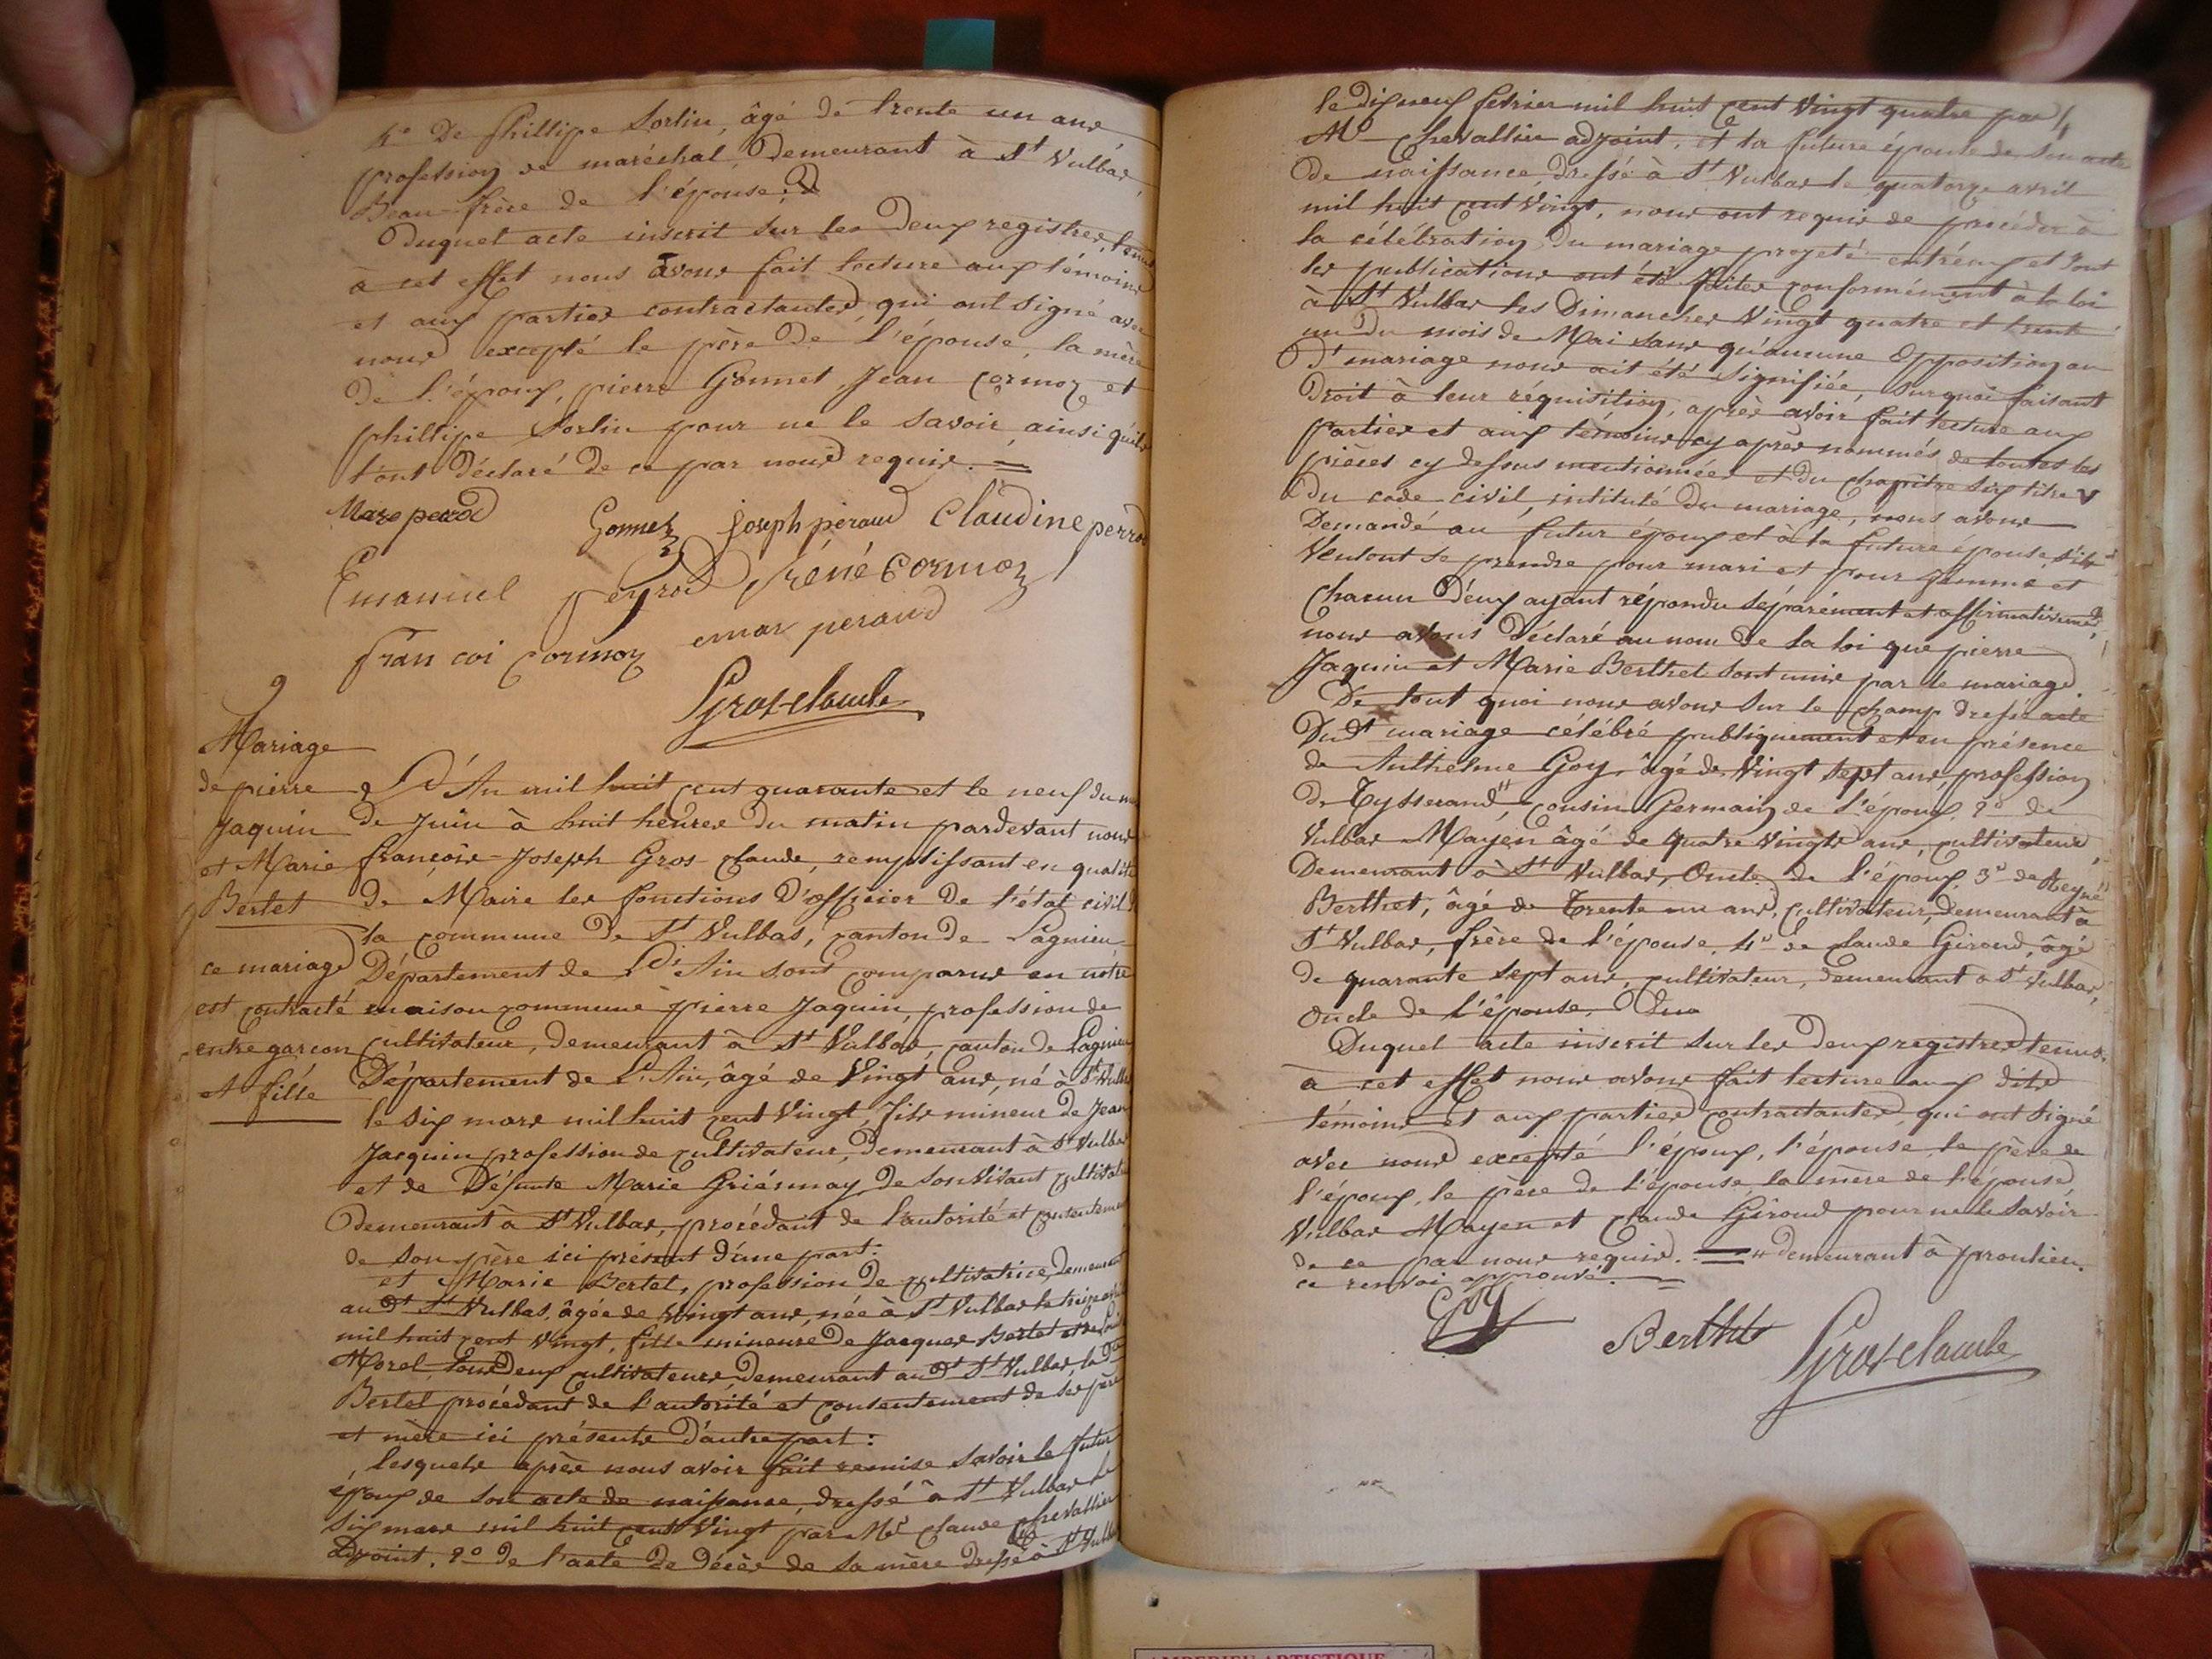 4º De Phillipe Sorlin, âgé de trente un ans
profession de maréchal, Demeurant à St Vulbas,
Beau-frère de l'épouse; D
Duquel acte inscrit sur les Deux registres, tenus
à cet effet nous avons fait lecture aux témoins
et aux parties contractantes, qui ont signé avec
nous excepté le père De l'épouse, la mère
De l'époux, pierre Gonnet, Jean Cormoz et
phillipe Sorlin pour ne le savoir, ainsi qu'ils
l'ont Déclaré de ce par nous requis. =
Gonnet joseph péraud Claudine perrod
Emanuel peyrod réné Cormoz
fran coi Cormoz emar peraud
Gros-claude
9
Mariage
de pierre
Jaquin
et Marie
Bertet
ce mariage
est contracté
entre garcon
et fille
L'An mil huit cent quarante et le neuf du
de Juin à huit heures du matin pardevant nous
françois-Joseph Gros-claude, remplissant en qualité
de Maire les fonctions D'officier De l'état civil
la commune de St Vulbas, canton de Lagnieu
Département de L'Ain sont comparus en nôtre
maison commune pierre Jaquin, profession de
cultivateur, demeurant à St Vulbas, canton de Lagnieu
Département de L'Ain, âgé de Vingt ans, né à St Vulbas
le six mars mil huit cent vingt, fils mineur de Jean
Jacquin profession de cultivateur, demeurant à St Vulbas
et de Défunte Marie Griénnay de son vivant cultivatrice
demeurant à St Vulbas, procédant de l'autorité et consentement
de son père ici présent d'une part:
et Marie Bertet, profession de cultivatrice, demeurant
au dt St Vulbas, âgée de Vingt ans, née à St Vulbas le treize avril
mil huit cent vingt, fille mineure de Jacques Bertet et de
Morel, tous Deux cultivateurs, demeurant au dt St Vulbas, la dte
Bertet procédant de l'autorité et consentement de ses père
et mère ici présents D'autre part:
lesquels après nous avoir fait remise savoir le futur
époux de son acte de naissance, dressé à St Vulbas le
six mars mil huit cent Vingt par Mr claude Chevallier
adjoint, 2º De l'acte De décès de sa mère dressé à St Vulbas
le dix neuf février mil huit cent vingt quatre par
Mr Chevallier adjoint, et la future épouse de son acte
De naissance, dressé à St Vulbas le quatorze avril
mil huit cent Vingt, nous ont requis de procéder à
la célébration Du mariage projeté entr'eux et Dont
les publications ont été faites conformément à la loi
à St Vulbas les Dimanches Vingt quatre et trente
un Du mois de Mai sans qu'aucune opposition au
Dt mariage nous ait été signifiée, surquoi faisant
Droit à leur réquisition, après avoir fait lecture aux
parties et aux témoins cy après nommés de toutes les
pièces cy dessus mentionnées et du chapitre six titre V
Du code civil, intitulé Du mariage, nous avons
Demandé au futur époux et à la future épouse, s'ils
Veulent se prendre pour mari et pour femme et
Chacun D'eux ayant répondu séparément et affirmativement,
nous avons Déclaré au nom de la loi que pierre
Jaquin et Marie Berthet sont unis par le mariage.
De tout quoi nous avons sur le champ dressé acte
Du dt mariage célébré publiquement et en présence
de Anthelme Goy, âgé de Vingt sept ans, profession
de Tysserand", cousin Germain de l'époux, 2º de
Vulbas Mayen âgé de quatre vingts ans, cultivateur,
Demeurant à St Vulbas, Oncle de l'époux, 3º de Reyné
Berthet, âgé de Trente un ans, cultivateur, demeurant à
St Vulbas, frère de l'épouse, 4º de claude Giroud, âgé
de quarante sept ans, cultivateur, demeurant à St Vulbas,
oncle de l'épouse.
Duquel acte inscrit sur les Deux registres tenus
à cet effet nous avons fait lecture aux dits
témoins et aux parties contractantes, qui ont signé
avec nous excepté l'époux, l'épouse, le père de
l'époux, le père de l'épouse la mère de l'épouse
Vulbas Mayen et claude Giroud pour ne le savoir
de ce par nous requis. = " demeurant à proulieu.
ce renvoi approuvé. =
Goy Berthet Gros-claude